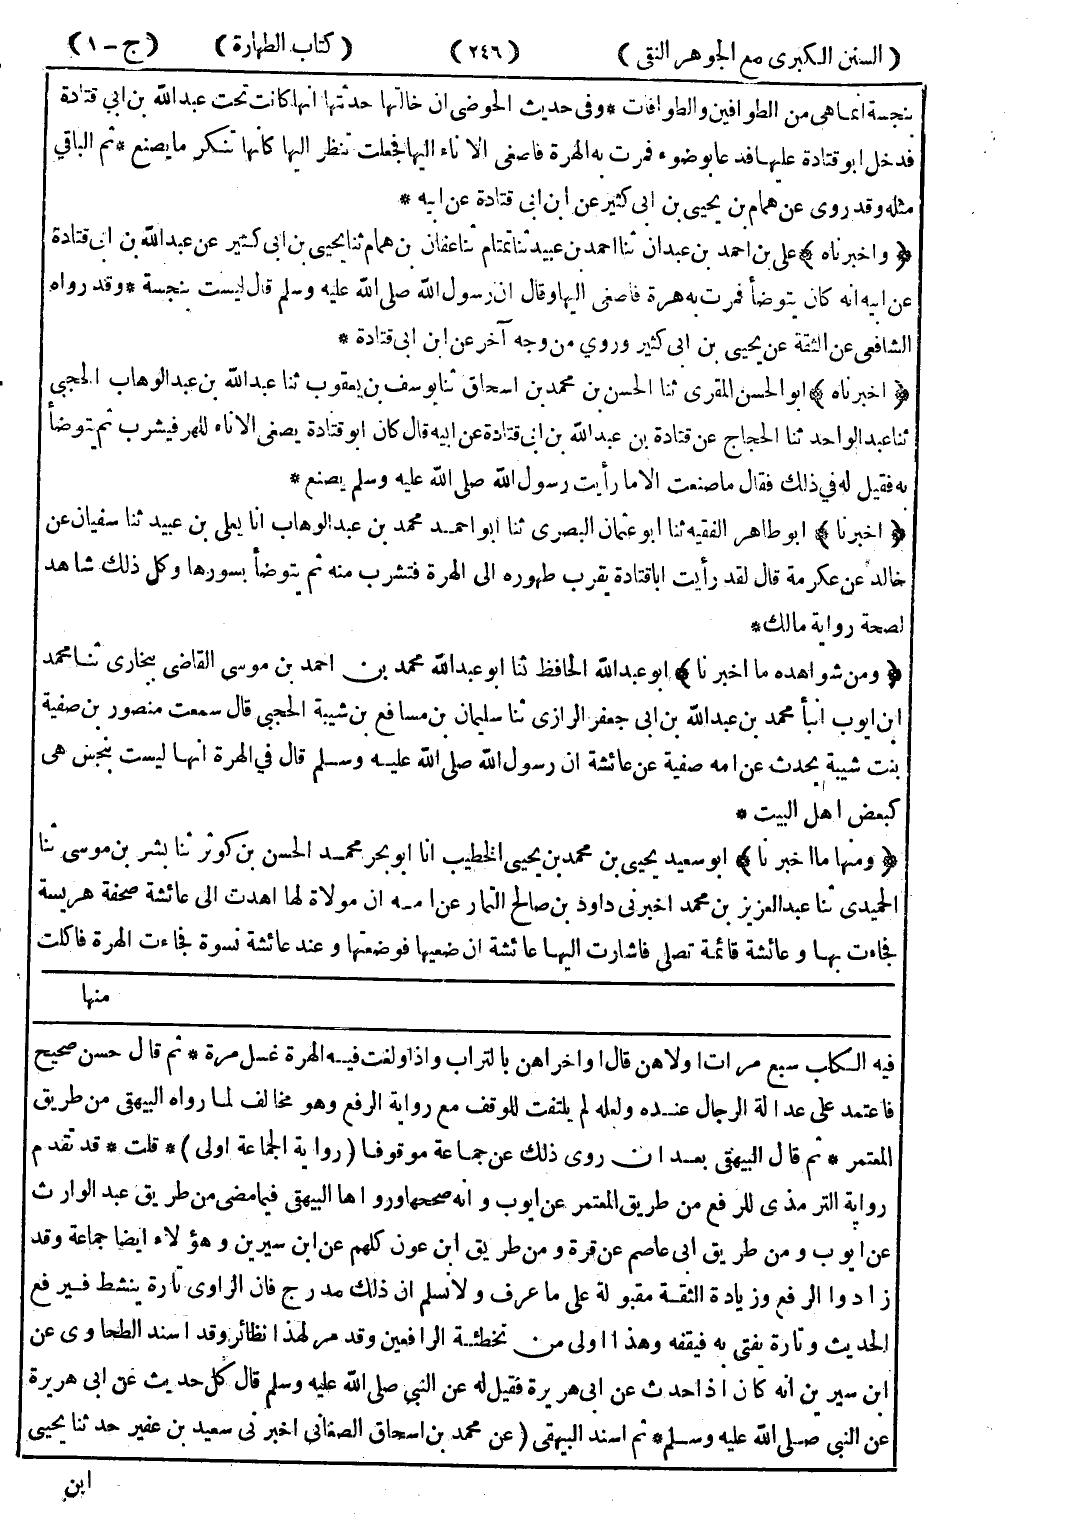 ( السنن الكبرى مع الجوهر النقى ) ( ٢٤٦ ) ( كتاب الطهارة ) ( ج - ١ )
بنجسة انما هى من الطوافين والطوافات * وفى حديث الحوضى ان خالتها حدثتها انها كانت تحت عبدالله بن ابي قتادة
فدخل ابو قتادة عليها فد عا بوضوء فمرت به الهرة فاصغى الاناء اليها فجعلت تنظر اليها كانها تنكر ما يصنع * ثم الباقي
مثله وقد روى عن همام بن يحيى بن ابى كثير عن ابن ابى قتادة عن ابيه *
﴿ و اخبرناه ﴾ على بن احمد بن عبدان ثنا احمد بن عبيد ثنا تمتام ثنا عفان بن همام ثنا يحيى بن ابى كثير عن عبدالله بن ابى قتادة
عن ابيه انه كان يتوضأ فمرت به هرة فاصغى اليها وقال ان رسول الله صلى الله عليه وسلم قال ليست بنجسة * وقد رواه
الشافعى عن الثقة عن يحيى بن ابى كثير وروي من وجه آخر عن ابن ابى قتادة *
﴿ اخبرناه ﴾ ابو الحسن المقرى ثنا الحسن بن محمد بن اسحاق ثنا يوسف بن يعقوب ثنا عبدالله بن عبدالوهاب الحجبي
ثنا عبدالواحد ثنا الحجاج عن قتادة بن عبدالله بن ابى قتادة عن ابيه قال كان ابو قتادة يصغى الاناء للهر فيشرب ثم يتوضأ
به فقيل له فى ذلك فقال ما صنعت الا ما رأيت رسول الله صلى الله عليه وسلم يصنع *
﴿ اخبرنا ﴾ ابو طاهر الفقيه ثنا ابو عثمان البصرى ثنا ابو احمد محمد بن عبدالوهاب انا يعلى بن عبيد ثنا سفيان عن
خالد عن عكرمة قال لقد رأيت اباقتادة يقرب طهوره الى الهرة فتشرب منه ثم يتوضأ بسورها وكل ذلك شاهد
لصحة رواية مالك *
﴿ ومن شواهده ما اخبرنا ﴾ ابو عبدالله الحافظ ثنا ابو عبدالله محمد بن احمد بن موسى القاضى ببخارى ثنا محمد
ابن ايوب انبأ محمد بن عبدالله بن ابى جعفر الرازى ثنا سليمان بن مسافع بن شيبة الحجبى قال سمعت منصور بن صفية
بنت شيبة يحدث عن امه صفية عن عائشة ان رسول الله صلى الله عليه وسلم قال في الهرة انها ليست بنجس هى
كبعض اهل البيت *
﴿ ومنها ما اخبرنا ﴾ ابو سعيد يحيى بن محمد بن يحيى الخطيب انا ابو بحر محمد الحسن بن كوثر ثنا بشر بن موسى ثنا
الحميدى ثنا عبدالعزيز بن محمد اخبرنى داود بن صالح التمار عن امه ان مولاة لها اهدت الى عائشة صحفة هريسة
فجاءت بها و عائشة قائمة تصلى فاشارت اليها عائشة ان ضعيها فوضعتها و عند عائشة نسوة فجاءت الهرة فاكلت
منها
فيه الكلب سبع مرات اولاهن قال او اخراهن بالتراب واذا ولغت فيه الهرة غسل مرة * ثم قال حسن صحيح
فاعتمد على عدالة الرجال عنده ولعله لم يلتفت للوقف مع رواية الرفع وهو مخالف لما رواه البيهقى من طريق
المعتمر * ثم قال البيهقى بعد ان روى ذلك عن جماعة موقوفا ( رواية الجماعة اولى ) * قلت * قد تقدم
رواية الترمذى للرفع من طريق المعتمر عن ايوب و انه صححها ورواها البيهقى فيما مضى من طريق عبد الوارث
عن ايوب و من طريق ابى عاصم عن قرة و من طريق ابن عون كلهم عن ابن سيرين و هؤلاء ايضا جماعة وقد
زادوا الرفع وزيادة الثقة مقبولة على ما عرف ولا نسلم ان ذلك مدرج فان الراوى تارة ينشط فيرفع
الحديث و تارة يفتى به فيقفه وهذا اولى من تخطئة الرافعين وقد مر لهذا نظائر وقد اسند الطحاوى عن
ابن سيرين انه كان اذا حدث عن ابى هريرة فقيل له عن النبي صلى الله عليه وسلم قال كل حديث عن ابى هريرة
عن النبي صلى الله عليه وسلم * ثم اسند البيهقى ( عن محمد بن اسحاق الصغانى اخبرنى سعيد بن عفير حدثنا يحيى
ابن